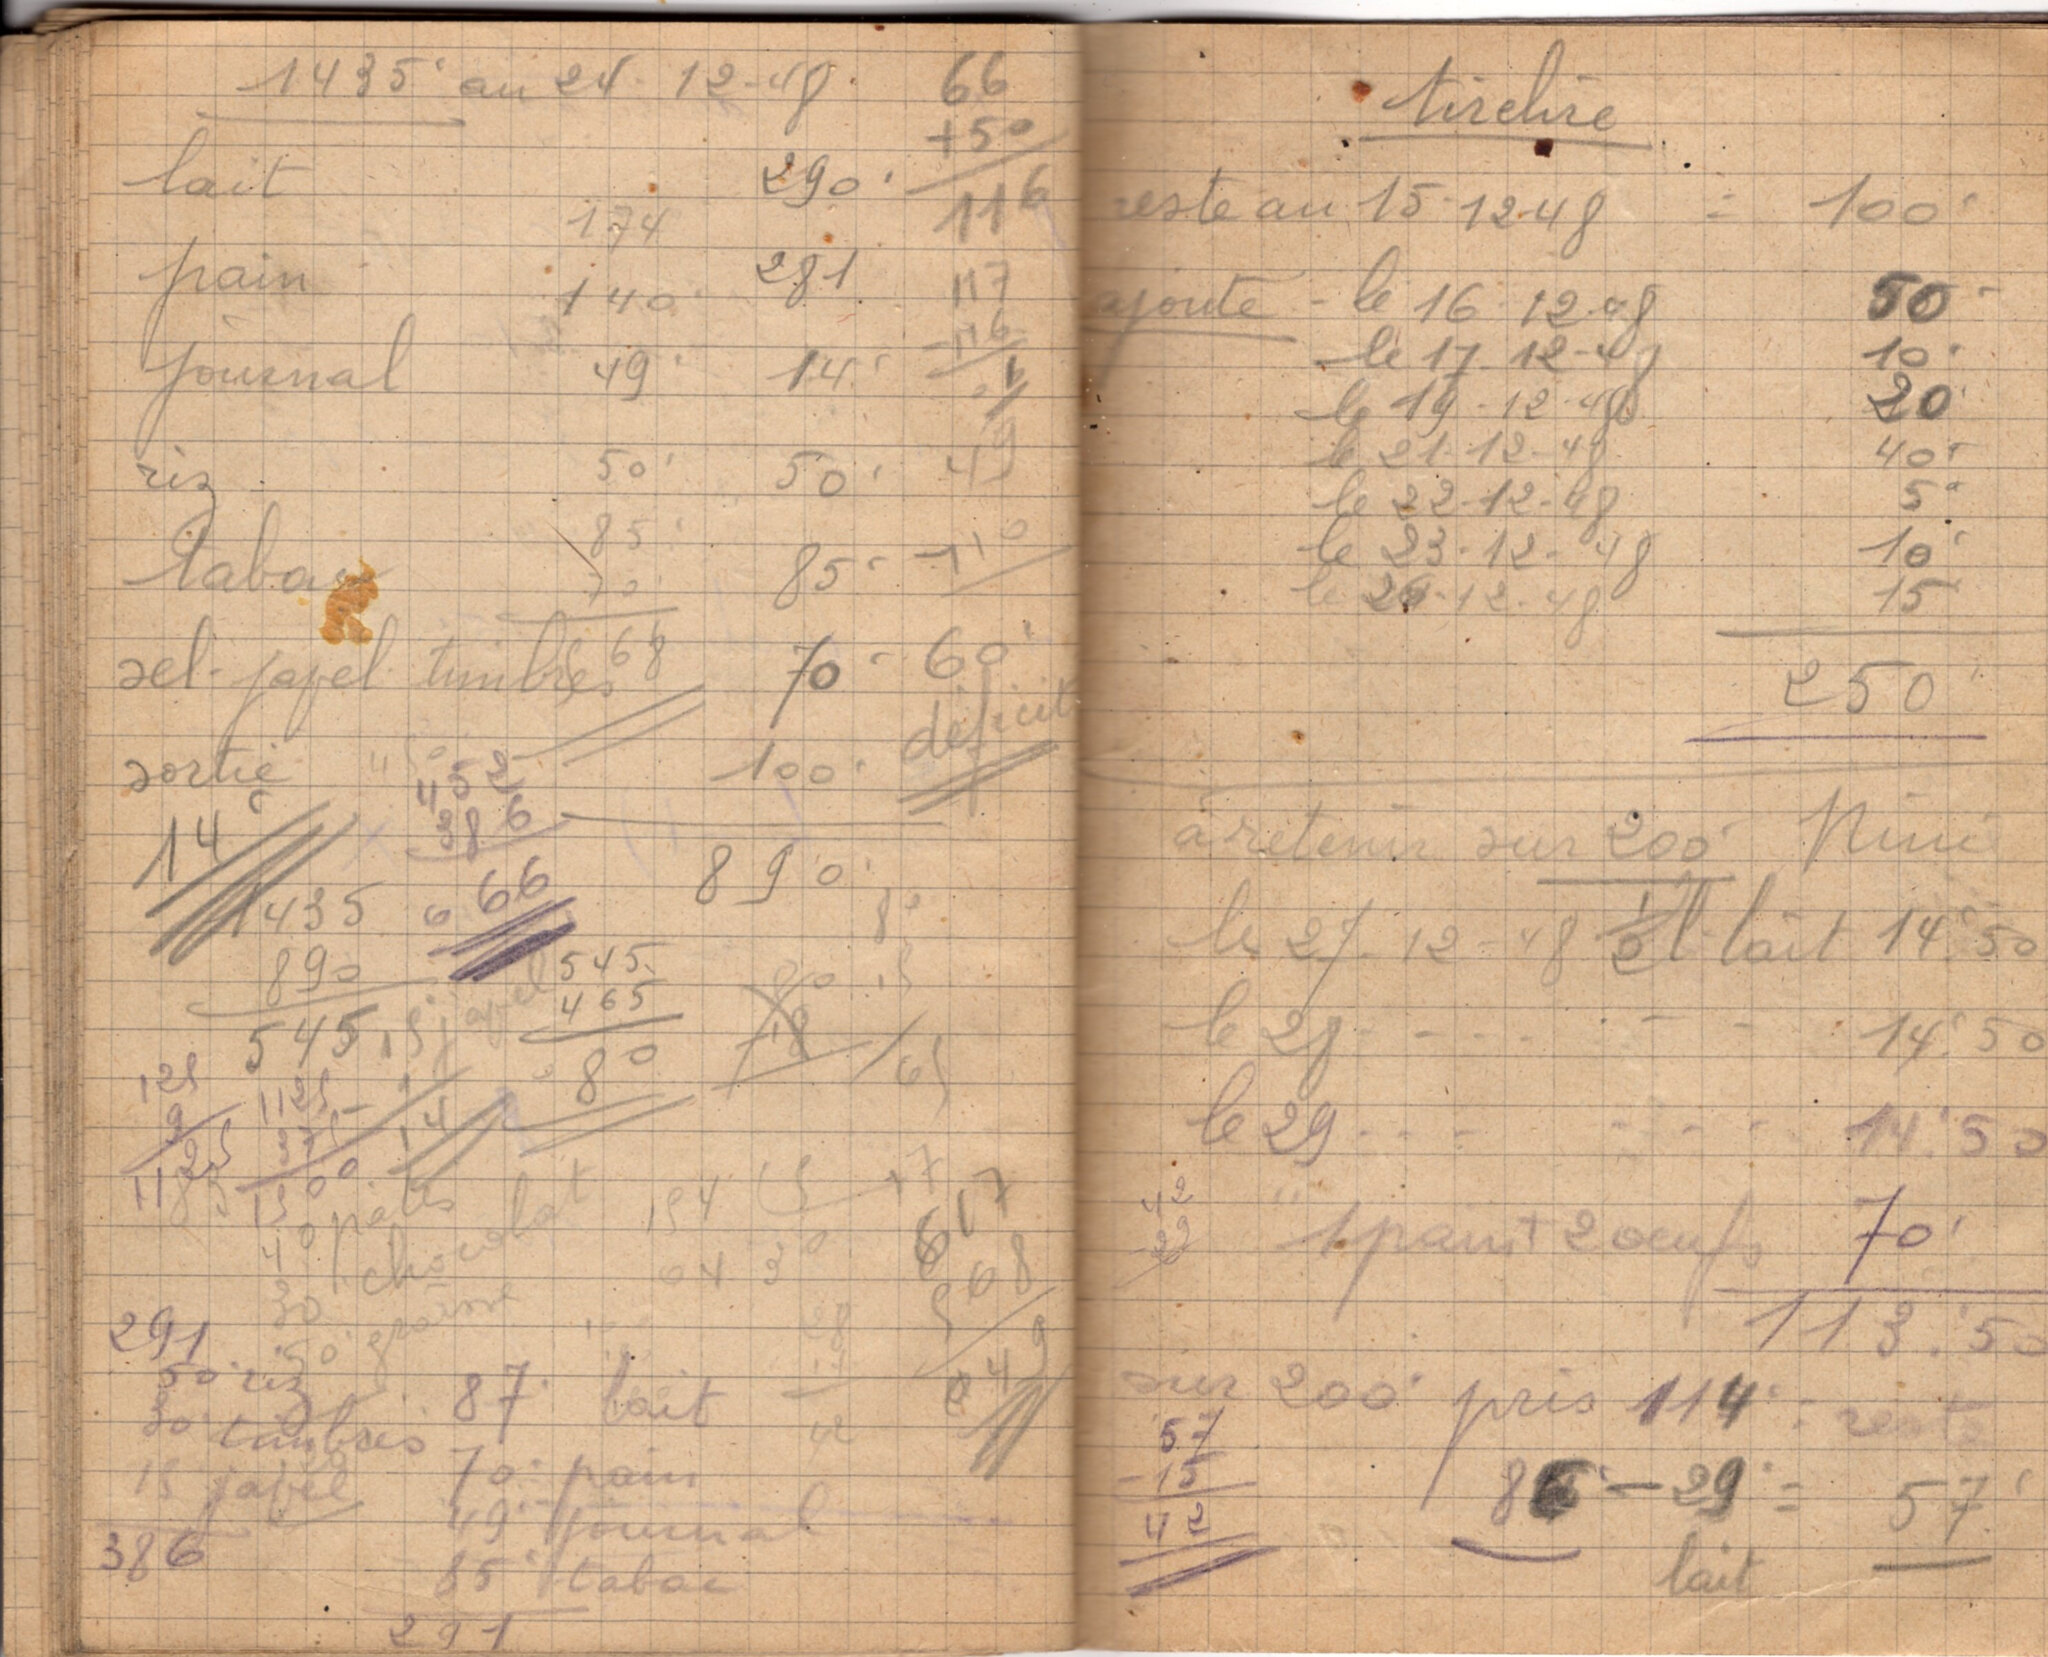 1435' au 24-12-48
66
+50
116
lait 290'
174
pain 140' 281
117
-116
01
journal 49' 14'
49
riz 50' 50'
85'
-110
tabac 70' 85'
sel-papel-timbres 468 70' 60'
déficit
sortie 100'
452
386
66
14'
890'
1435
890
545
15' papel
545
465
80
80
15
65
125
9
1125
1125
375
1500
14
85
40 pates
30 chocolat
50' graisse
154
617
568
049
28
42
291
50' riz
30' timbres
15 papel
386
87' lait
70' pain
49' journal
85' tabac
291
tirelire
reste au 15-12-48 = 100'
ajouté - le 16-12-48 50'
le 17-12-48 10'
le 19-12-48 20'
le 21-12-48 40'
le 22-12-48 5'
le 23-12-48 10'
le 26-12-48 15
250'
à retenir sur 200' Nini
le 27-12-48 1l lait 14'50
le 28 - - - - - - 14'50
le 29 - - - - - - - 14'50
42
29
" 1 pain + 2 oeufs 70'
113'50
sur 200' pris 114' = reste
57
-15
42
86' - 29' = 57'
lait